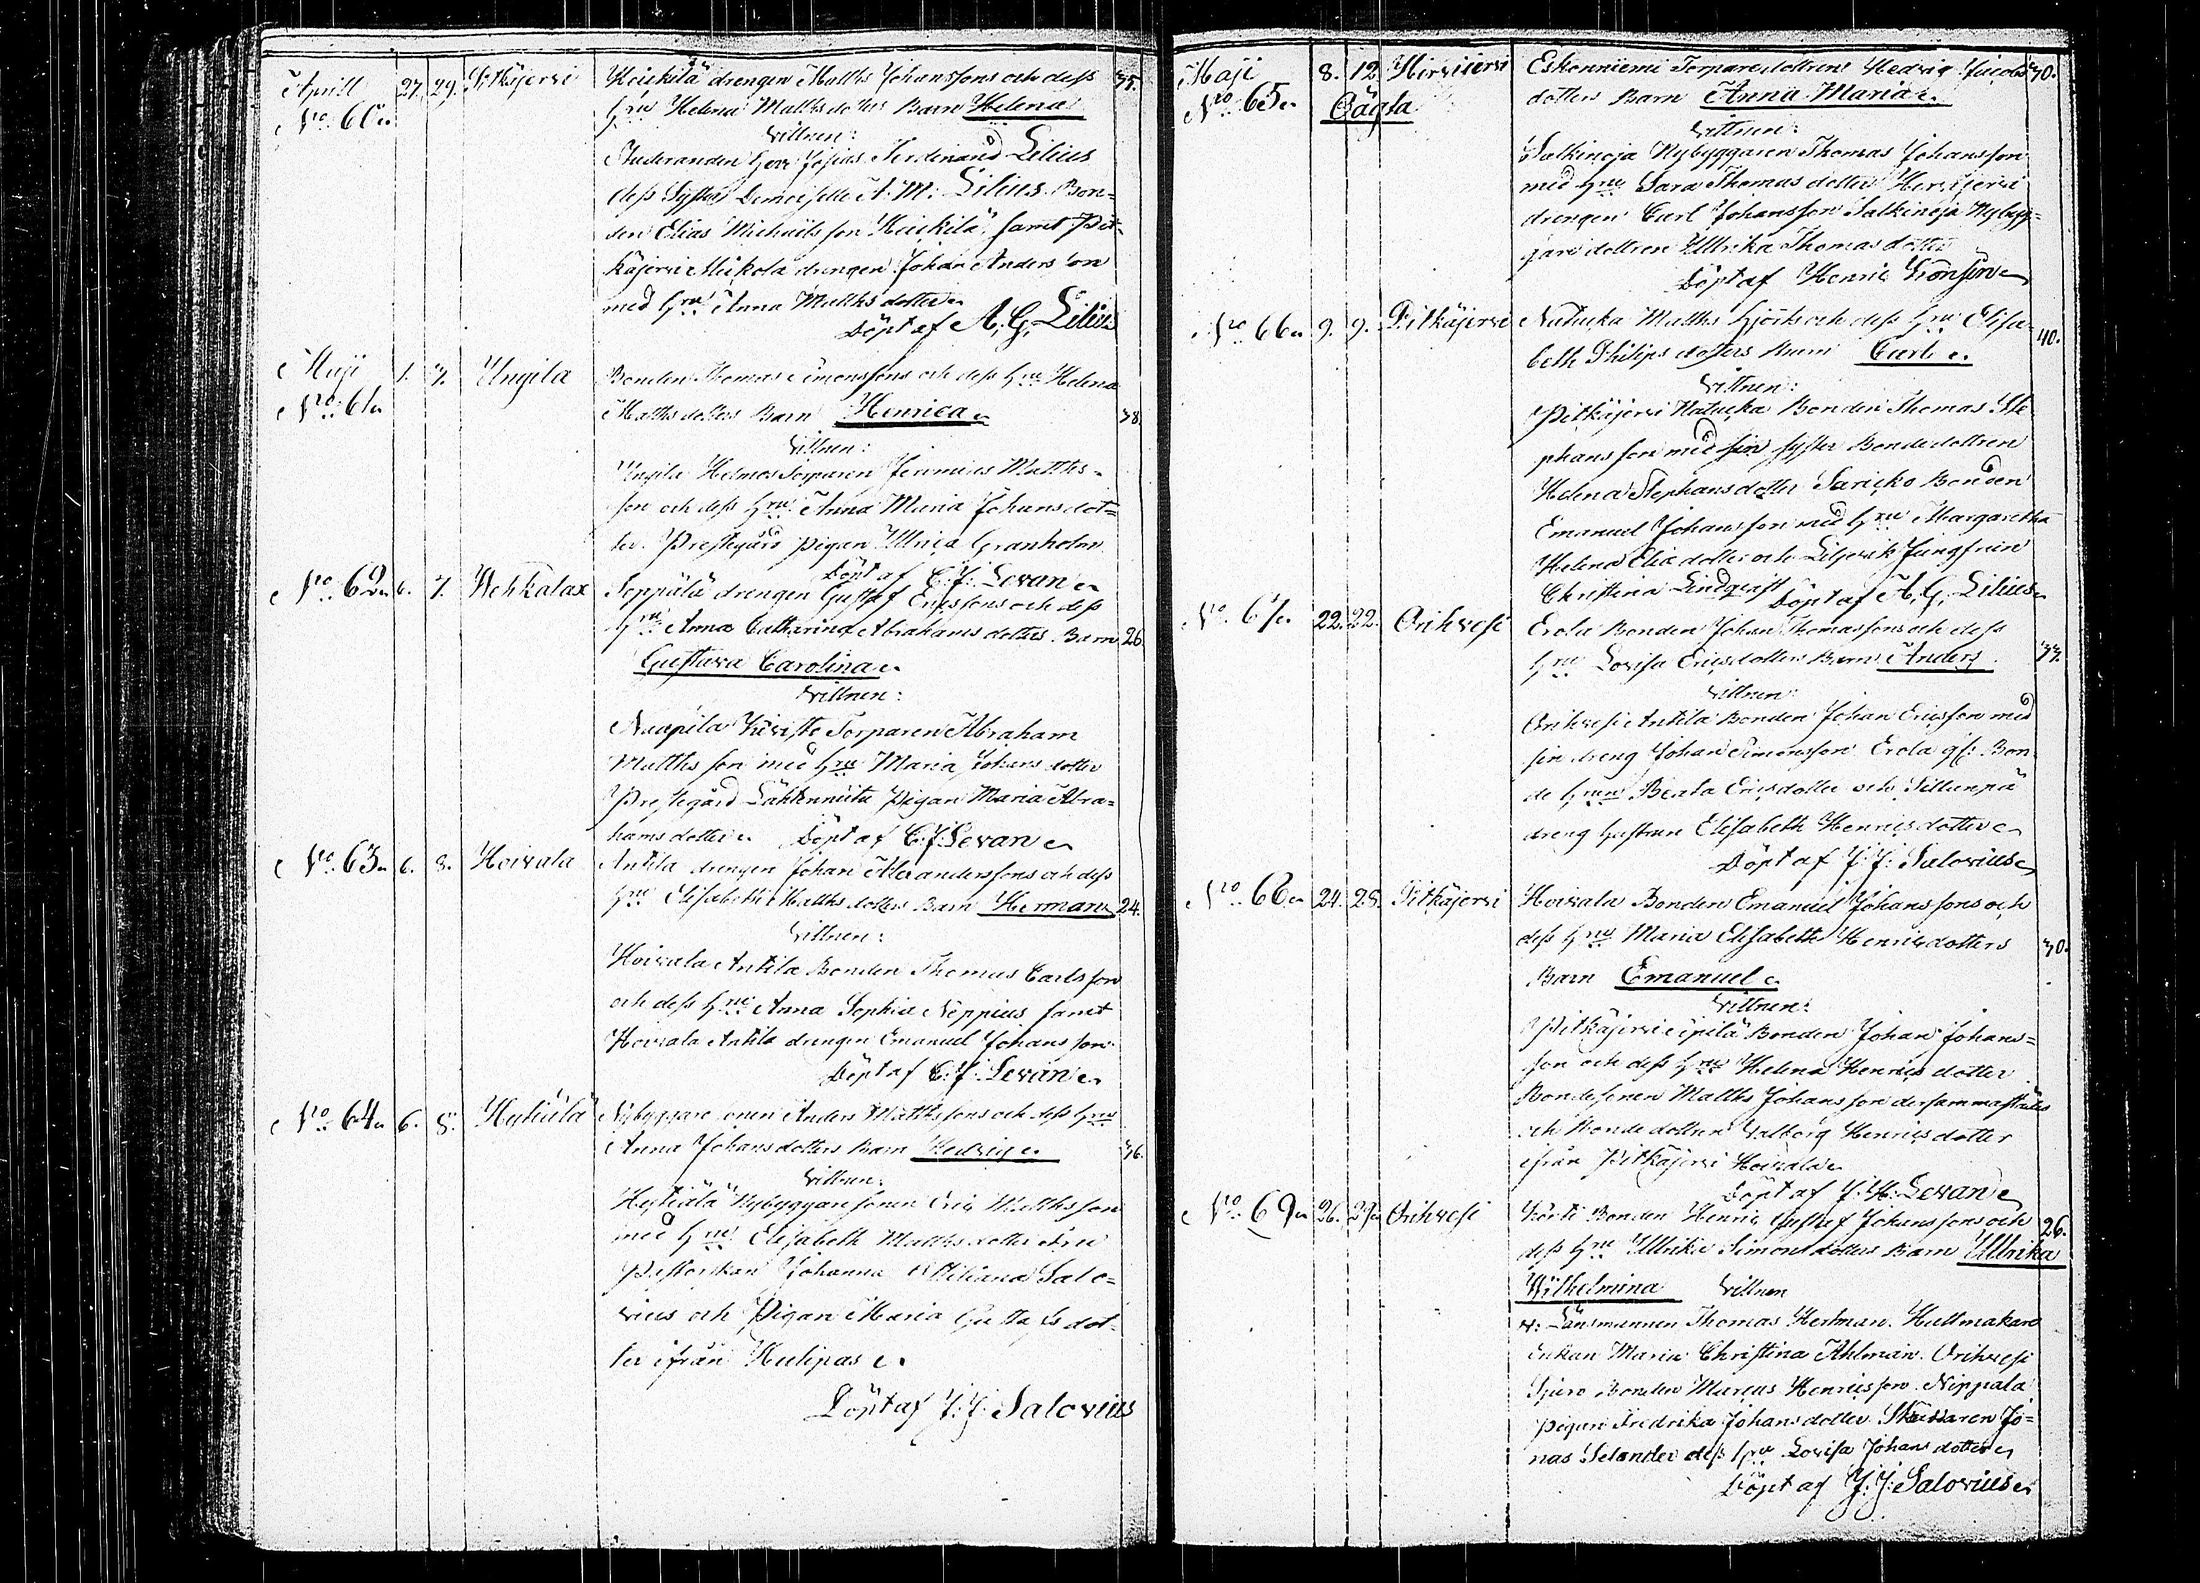 Aprill 27. 29. Pitkäjervi Heikilä drengen Matths Johanssons och dess 35.
No 60. hru Helena Matthsdotters Barn Helena
Vittnen:
Studeranden Herr Josias Ferdinand Lilius
dess Syster Demoiselle A. M. Lilius. Bon=
den Elias Michaelsson Heikilä, samt Pit=
käjervi Mickola drengen Johan Andersson
med hru Anna Matthsdotter
Döpt af A. G. Lilius
Maji 1. 7. Ungila Bonden Thomas Simonssons och dess hru Helena
No 61. Matthsdotters Barn Henrica 38.
Vittnen:
Ungila Torparen Matths=
son och dess hru Anna Maria Johansdot=
ter. Prestegård pigan Ulrica Granholm
Döpt af C. J. Levan
No 62. 6. 7. Wehkalax Seppälä drengen Gustaf Ericssons och dess
hru Anna Catharina Abrahamsdotters Barn 26.
Gustava Carolina
Vittnen:
Torparen Abraham
Matthsson med hru Maria Johansdotter
Prestegård Pigan Maria Abra=
hamsdotter. Döpt af C. J. Levan
No 63. 6. 8. Hoivala Antila drengen Johan Alexanderssons och dess
hru Elisabeth Matthsdotters Barn Herman 24.
Vittnen:
Hoivala Antila Bonden Thomas Carlsson
och dess hru Anna Sophia Neppius samt
Hoivala Antila drengen Emanuel Johansson
Döpt af C. J. Levan
No 64. 6. 8. Hytiälä Nybyggare sonen Anders Matthssons och dess hru
Anna Johansdotters Barn Hedvig 36.
Vittnen:
Hytiälä Nybyggaresonen Eric Matthsson
med hru Elisabeth Matthsdotter
Pastorskan Johanna Salo=
vius och Pigan Maria Gustafsdot=
ter ifrån Hulipas
Döpt af J. J. Salovius
Maji 8. 12. Hirvijervi Eskonniemi Torparedottren Hedvig Jacobs 30.
No 65. Oägta dotters Barn Anna Maria
Vittnen:
Salkinoja Nybyggaren Thomas Johansson
med hru Sara Thomasdotter Hirvijervi
drengen Carl Johansson Salkinoja Nybyg=
garedottren Ullrika Thomasdotter
Döpt af Henric
No 66. 9. 9. Pitkäjervi Natucka Matths och dess hru Elisa=
beth Philipsdotters Barn Carl 40.
Vittnen:
Pitkäjervi Natucka Bonden Thomas Ste
phansson med sin syster Bondedottren
Helena Stephansdotter Bonden
Emanuel Johansson med hru Margaretha
Helena Eliædotter och Jungfrun
Christina Lindqvist Döpt af A. G. Lilius
No 67. 22. 22. Orihvesi Erola Bonden Johan Thomassons och dess
hru Lovisa Ericsdotters Barn Anders 33.
Vittnen:
Orihvesi Antila Bonden Johan Ericsson med
sin dreng Johan Simonsson Erola gl: Bon=
de hrun Beata Ericsdotter och
dreng hustrun Elisabeth Henricsdotter
Döpt af J. J. Salovius
No 68. 24. 28. Pitkäjervi Hoivala Bonden Emanuel Johanssons och
dess hru Maria Elisabeth Henricsdotters 30.
Barn Emanuel
Vittnen:
Pitkäjervi Bonden Johan Johans=
son och dess hru Helena Henricsdotter
Bondesonen Matths Johansson dersammastädes
och Bondedottren Valborg Henricsdotter
ifrån Pitkäjervi Hoivala
Döpt af J. H. Levan
No 69. 26. 29. Orihvesi Bonden Henric Gustaf Johanssons och 26.
dess hru Ullrika Simonsdotters Barn Ullrika
Wilhelmina Vittnen
v: Länsmannen Thomas Hertman. Hattmakare
Enkan Maria Christina Ahlman. Orihvesi
Bonden Marcus Henricsson. Nippala
Pigan Fredrika Johansdotter Skräddaren Jo=
nas Selander dess hru Lovisa Johansdotter
Döpt af J. J. Salovius